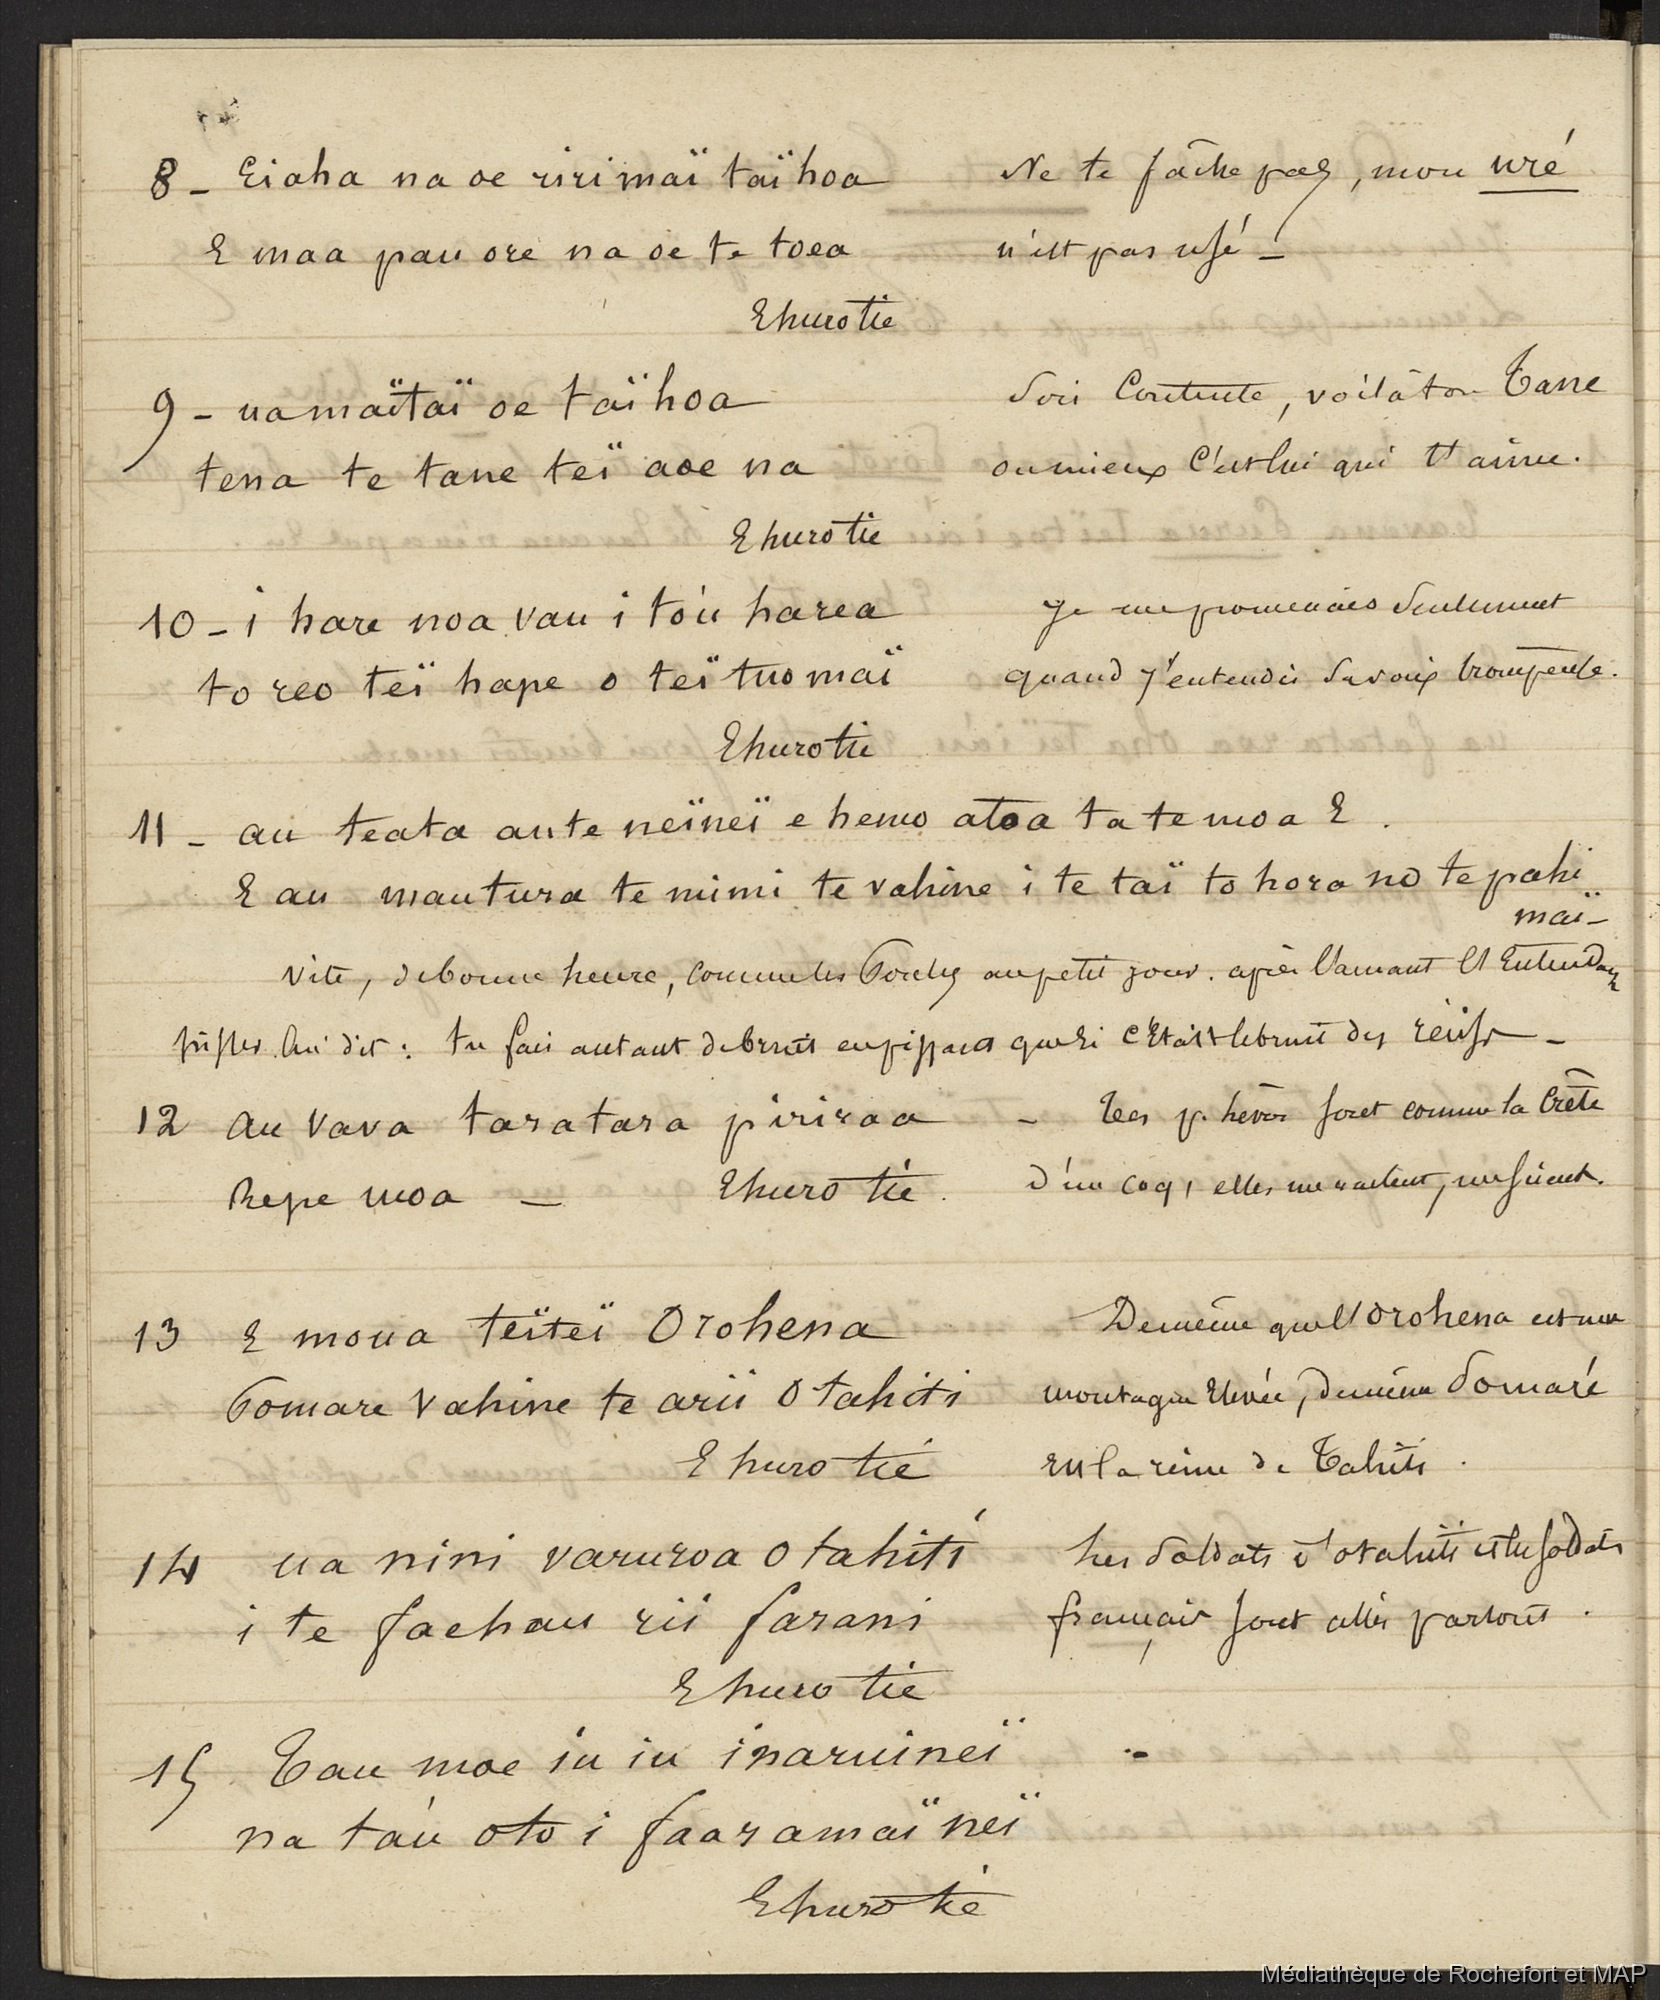 8 - Eiaha na oe ririmaï taï hoa Ne te fâche pas, mon uré
E maa pau ore na oe te toea n'est pas usé -
Ehurotie
9 - ua maïtaï oe taï hoa Sois Contente, voilà ton Tane
tena te tane teï aoe na ou mieux C'est lui qui t'aime.
Ehurotie
10 - i hare noa vau i to'u harea Je me promenais Seulement
to reo teï hape o teï tuo maï quand J'entendis Sa voix trompeuse.
Ehurotie
11 - au teata au te neïneï e hemo atoa ta te moa E.
E au mautura te mimi te vahine i te taï to hora no te pahi
maï -
Vite, de bonne heure, comme les Poules au petit jour. après l'amant l'Entendant
pisser lui dit : tu fais autant de bruit en pissant que si c'Etait le bruit des
12 au vava taratara piriraa - Tes p. lèvres sont comme la Crête
Repe moa - Ehurotié. d'un coq,
13 E moua teïteï Orohena De même que l'Orohena est une
Pomare Vahine te arii Otahiti montagne Elevée, de même Pomaré
Ehurotié est la reine de Tahiti.
14 ua nini varuroa Otahiti Les Soldats d'Otahiti et les soldats
i te faehau rii farani français sont allés partout.
Ehurotié
15 Tau moe iu iu inaruineï -
na táu oto i faaramaï neï
Ehurotié
Médiathèque de Rochefort et MAP